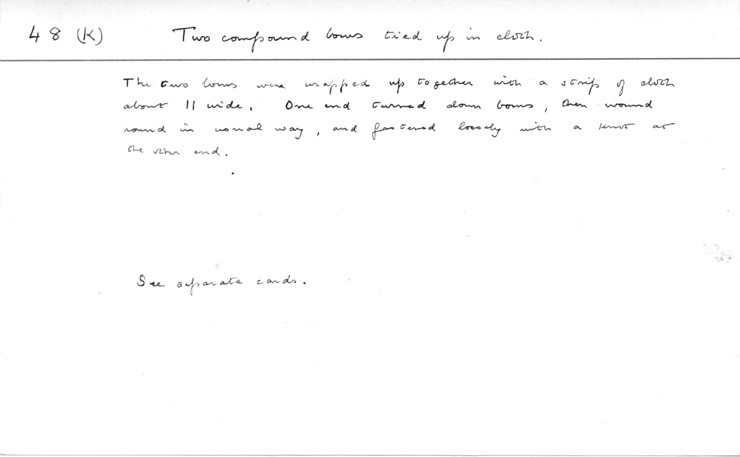 48 (K) Two compound bows tied up in cloth.
The two bows were wrapped up together with a strip of cloth
about 11 wide. One end turned down bows, then wound
round in usual way, and fastened loosely with a knot at
the other end.
See separate cards.